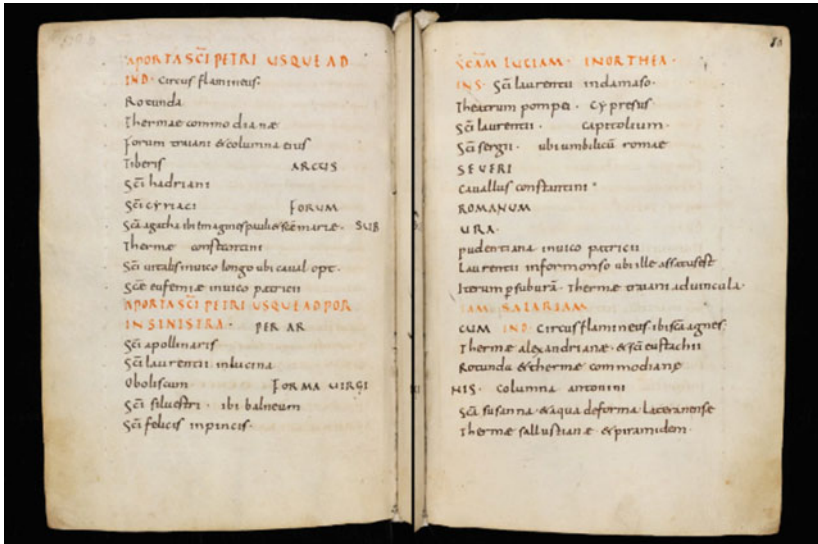 APORTA SC̄I PETRI USQUE AD
IND· Circus flamineus·
Rotunda
Thermae commodianæ
forum traiani & columna eius
Tiberis ARCUS
Sc̄i hadriani
Sc̄i cyriaci FORUM
Sc̄a agatha ibi imagines pauli & sc̄e mariæ· SUB
Thermæ constantini
Sc̄i uitalis inuico longo ubi caual opt·
Sc̄e eufemiæ inuico patricii
APORTA SC̄I PETRI USQUE AD POR
IN SINISTRA· PER AR
Sc̄i apollinaris
Sc̄i laurentii inlucina
Oboliscum FORMA UIRGI
Sc̄i siluestri· ibi balneum
Sc̄i felicis inpincis·
80
SC̄AM LUCIAM· INORTHEA·
INS· Sc̄i laurentii indamaso·
Theatrum pompei· Cypresus
Sc̄i laurentii· capitolium·
Sc̄i sergii· ubi umbilicū romae
SEUERI
Cauallus constantini·
ROMANUM
URA·
pudentiana inuico patricii
Laurentii informonso ubi ille assatus est
Iterum p suburā· Thermæ traiani aduincula·
TAM SALARIAM
CUM IND· Circus flamineus· ibi sc̄a agnes·
Thermæ alexandrianæ· & sc̄i eustachii
Rotunda & thermæ commodianę
NIS· Columna antonini
Sc̄a susanna & aqua deforma lateranense
Thermæ sallustianæ & piramidem·